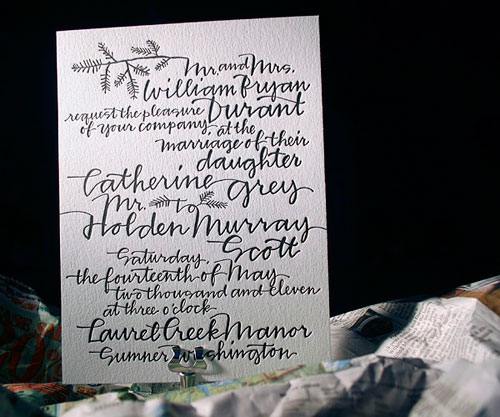 Mr. and Mrs.
William Bryan
request the pleasure Durant
of your company, at the
marriage of their
daughter
Catherine Grey
Mr. to
Holden Murray
Scott
Saturday,
the fourteenth of May
two thousand and eleven
at three o'clock
Laurel Creek Manor
Sumner Washington